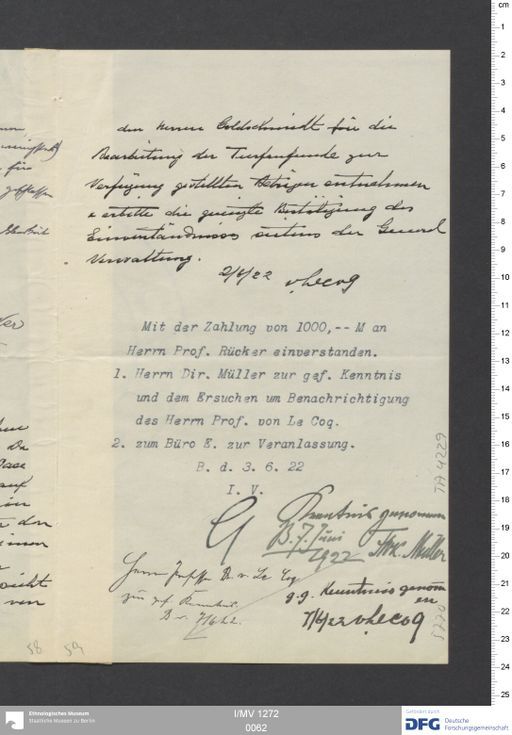 den Herren Goldschmidt für die
Bearbeitung der Turfanfunde zur
Verfügung gestellten Beträgen entnehmen
& erbitte die geneigte Bestätigung des
Einverständnisses seitens der General
Verwaltung.
2/6/22 v. Lecoq
Mit der Zahlung von 1000,-- M an
Herrn Prof. Rücker einverstanden.
1. Herrn Dir. Müller zur gef. Kenntnis
und dem Ersuchen um Benachrichtigung
des Herrn Prof. von Le Coq.
2. zum Büro E. zur Veranlassung.
B. d. 3. 6. 22
I. V.
Kenntnis genommen
B. 7. Juni
1922 Müller
Herrn Prof. Dr. v. Le Coq
zur gef. Kenntnis.
B. v. 7/6 22.
g. g. Kenntniss genom
en
7/6/22 v. Lecoq
TA 4229
5220
58 59
Ethnologisches Museum
Staatliche Museen zu Berlin
I/MV 1272
0062
Gefördert durch
DFG Deutsche
Forschungsgemeinschaft
cm
1
2
3
4
5
6
7
8
9
10
11
12
13
14
15
16
17
18
19
20
21
22
23
24
25